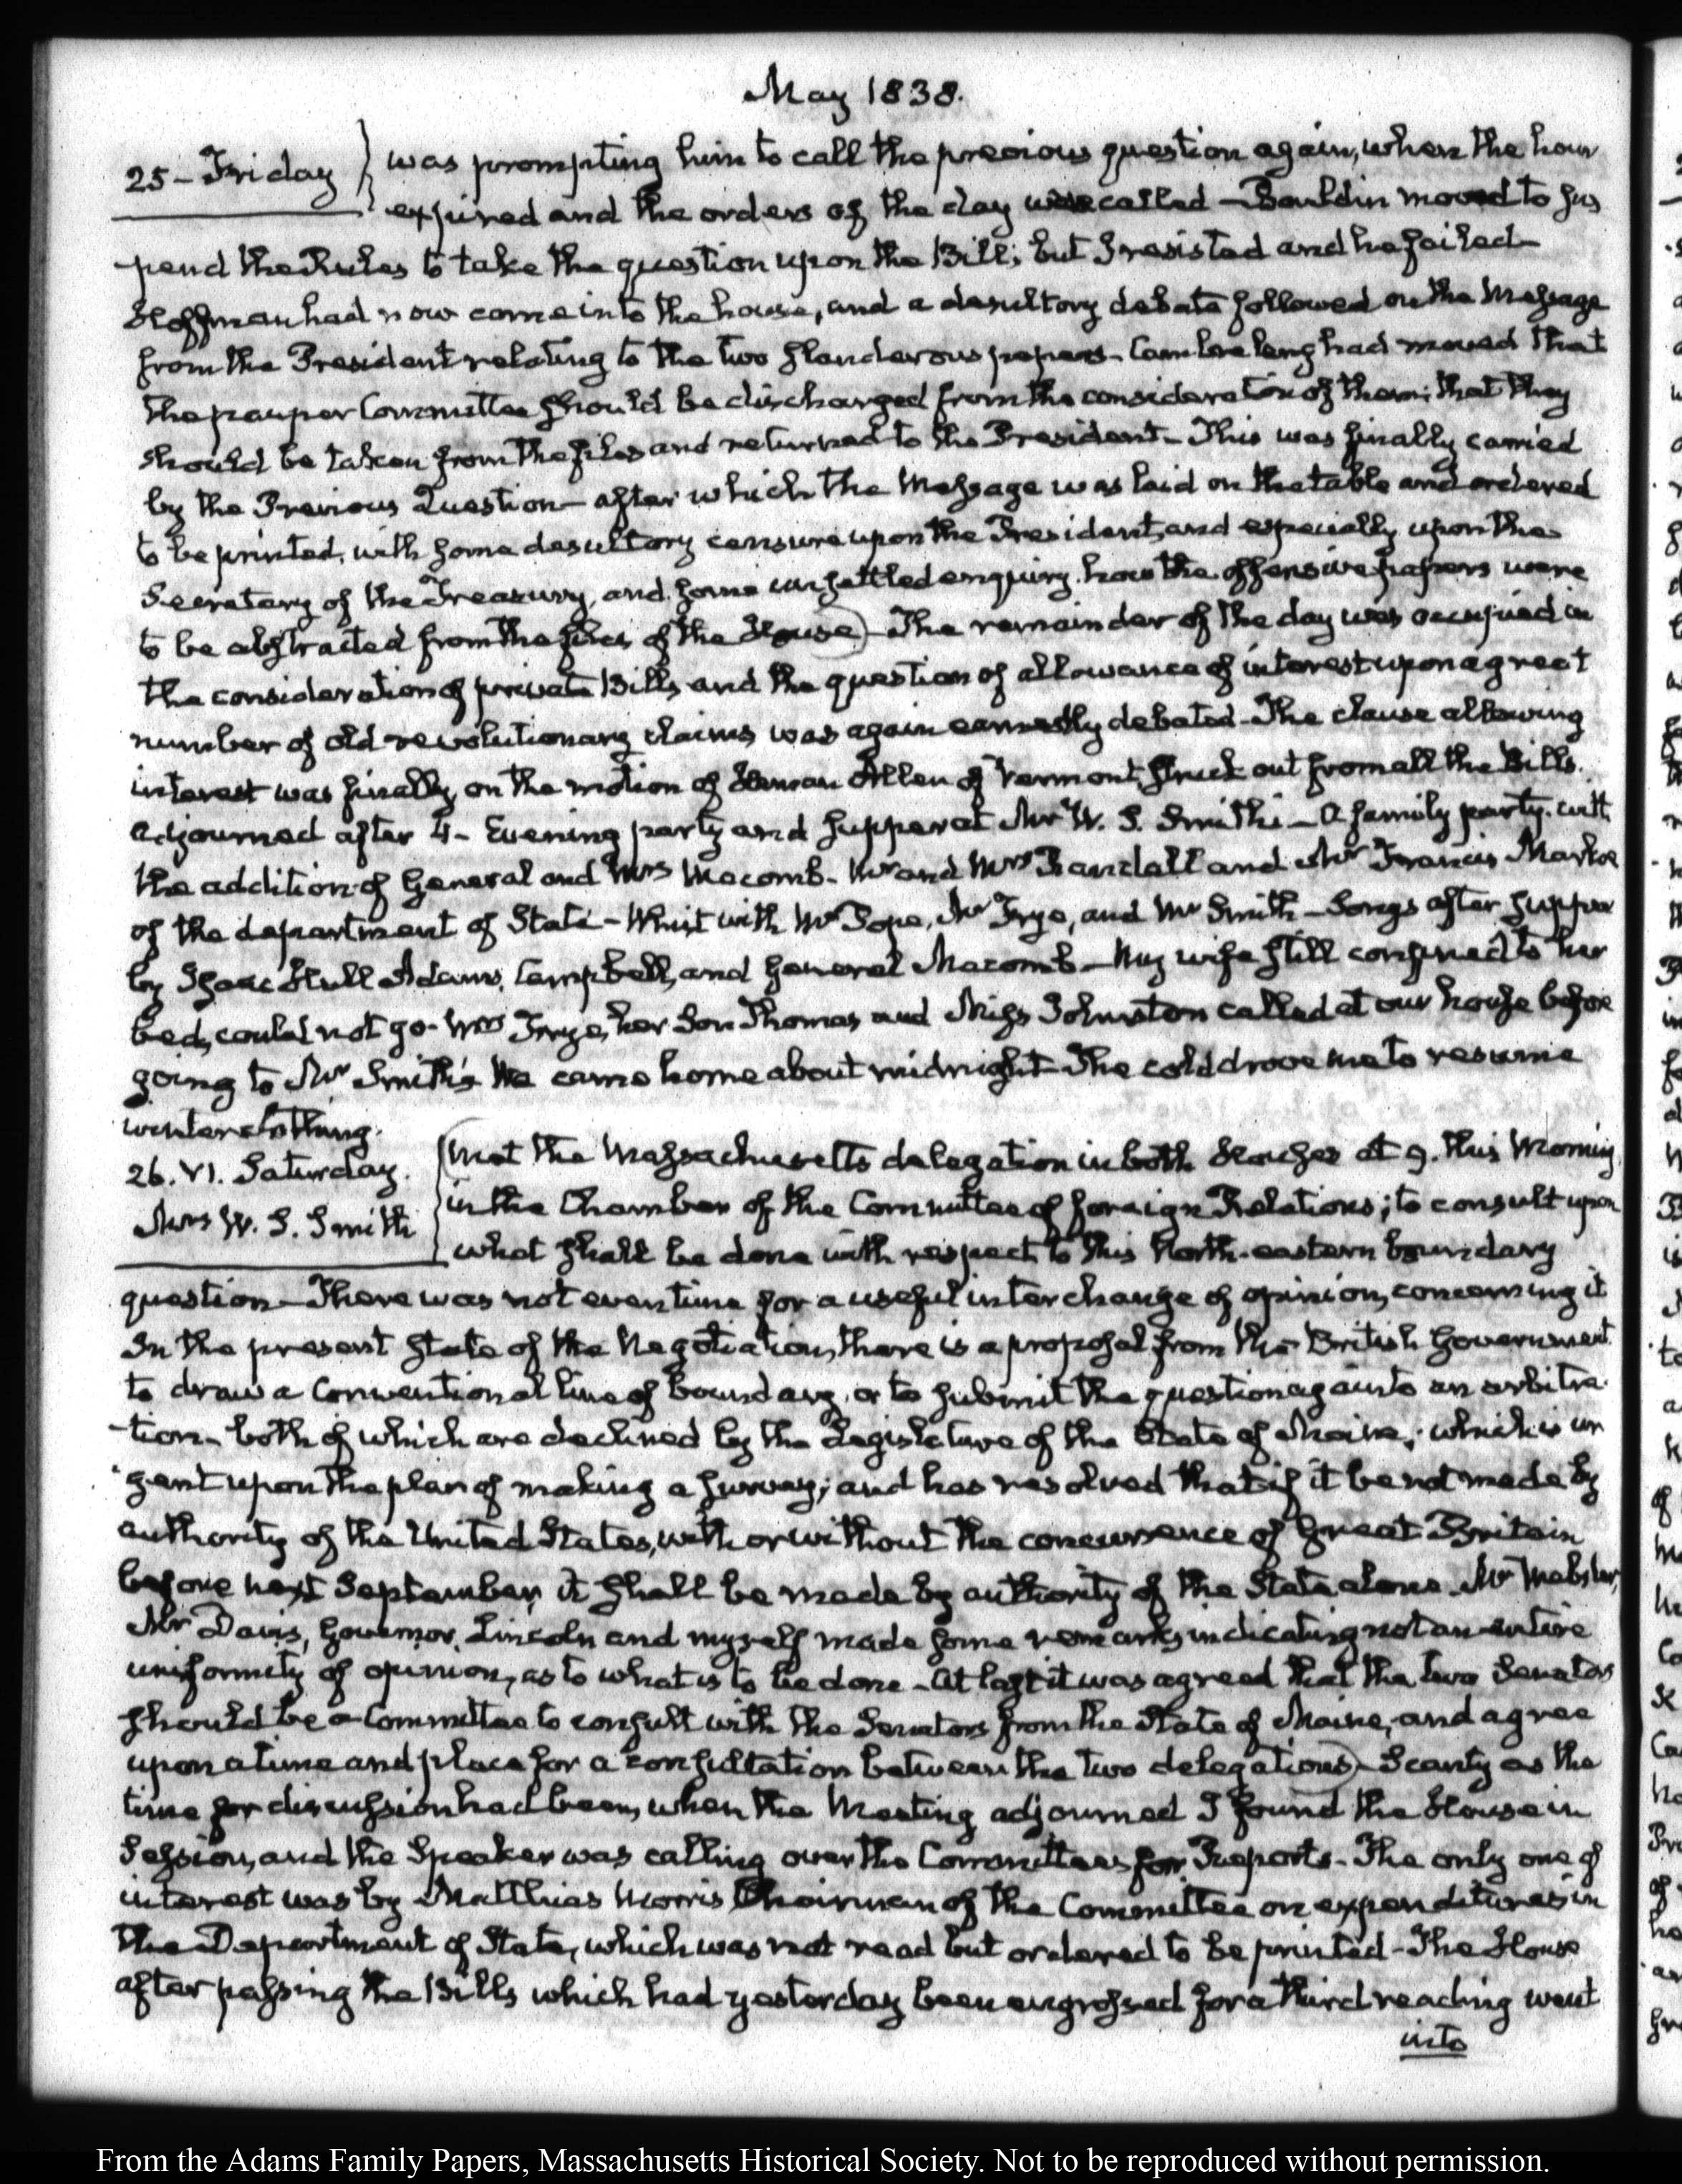 May 1838.
25 – Friday } was prompting him to call the previous question again, when the hour
expired and the orders of the day were called – Bouldin moved to sus
pend the Rules to take the question upon the Bill; but I resisted and he failed –
Hoffman had now come into the house, and a desultory debate followed on the Message
from the President relating to the two slanderous papers – Cambreleng had moved that
the pauper Committee should be discharged from the consideration of them; that they
should be taken from the files and returned to the President – This was finally carried
by the Previous Question – after which the Message was laid on the table and ordered
to be printed, with some desultory censure upon the President, and especially upon the
Secretary of the Treasury, and some unsettled enquiry how the offensive papers were
to be abstracted from the files of the House) – The remainder of the day was occupied in
the consideration of private Bills, and the question of allowance of interest upon a great
number of old revolutionary claims was again earnestly debated – The clause allowing
interest was finally, on the motion of Heman Allen of Vermont, struck out from all the Bills.
adjourned after 4 – Evening party and supper at Mr W. S. Smith's – a family party, with
the addition of General and Mrs Macomb – Mr and Mrs Randall and Mr Francis Markoe
of the department of State – Whist with Mr Pope, Mr Frye, and Mr Smith – Songs after supper
by Isaac Hull Adams, Campbell, and General Macomb – My wife still confined to her
bed, could not go – Mrs Frye, her Son Thomas and Miss Johnston called at our house before
going to Mr Smith's We came home about midnight – The cold drove me to resume
winter clothing.
26. VI. Saturday. (Met the Massachusetts delegation in both Houses at 9. this Morning
in the Chamber of the Committee of foreign Relations; to consult upon
Mrs W. S. Smith
what shall be done with respect to this North-eastern boundary
question – There was not even time for a useful interchange of opinion, concerning it
In the present state of the Negotiation, there is a proposal from the British Government
to draw a Conventional line of boundary, or to submit the question again to an arbitra-
-tion – both of which are declined by the Legislature of the State of Maine; which is ur
gent upon the plan of making a survey; and has resolved that if it be not made by
authority of the United States, with or without the concurrence of Great Britain
before next September, it shall be made by authority of the State alone. Mr Webster,
Mr Davis, Governor Lincoln and myself made some remarks, indicating not an entire
uniformity of opinion, as to what is to be done – At last it was agreed that the two Senators
should be a Committee to consult with the Senators from the State of Maine, and agree
upon a time and place for a consultation between the two delegations) – Scanty as the
time for discussion had been, when the Meeting adjourned I found the House in
Session, and the Speaker was calling over the Committees for Reports – The only one of
interest was by Matthias Morris Chairman of the Committee on expenditures in
the Department of State, which was not read but ordered to be printed – The House
after passing the Bills which had yesterday been engrossed for a third reading went
into
From the Adams Family Papers, Massachusetts Historical Society. Not to be reproduced without permission.